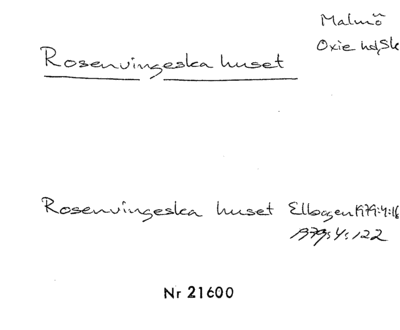 Malmö
Oxie hd, Sk
Rosenvingeska huset
Rosenvingeska huset Elbogen 1979:4:16
1979:4:122
Nr 21600